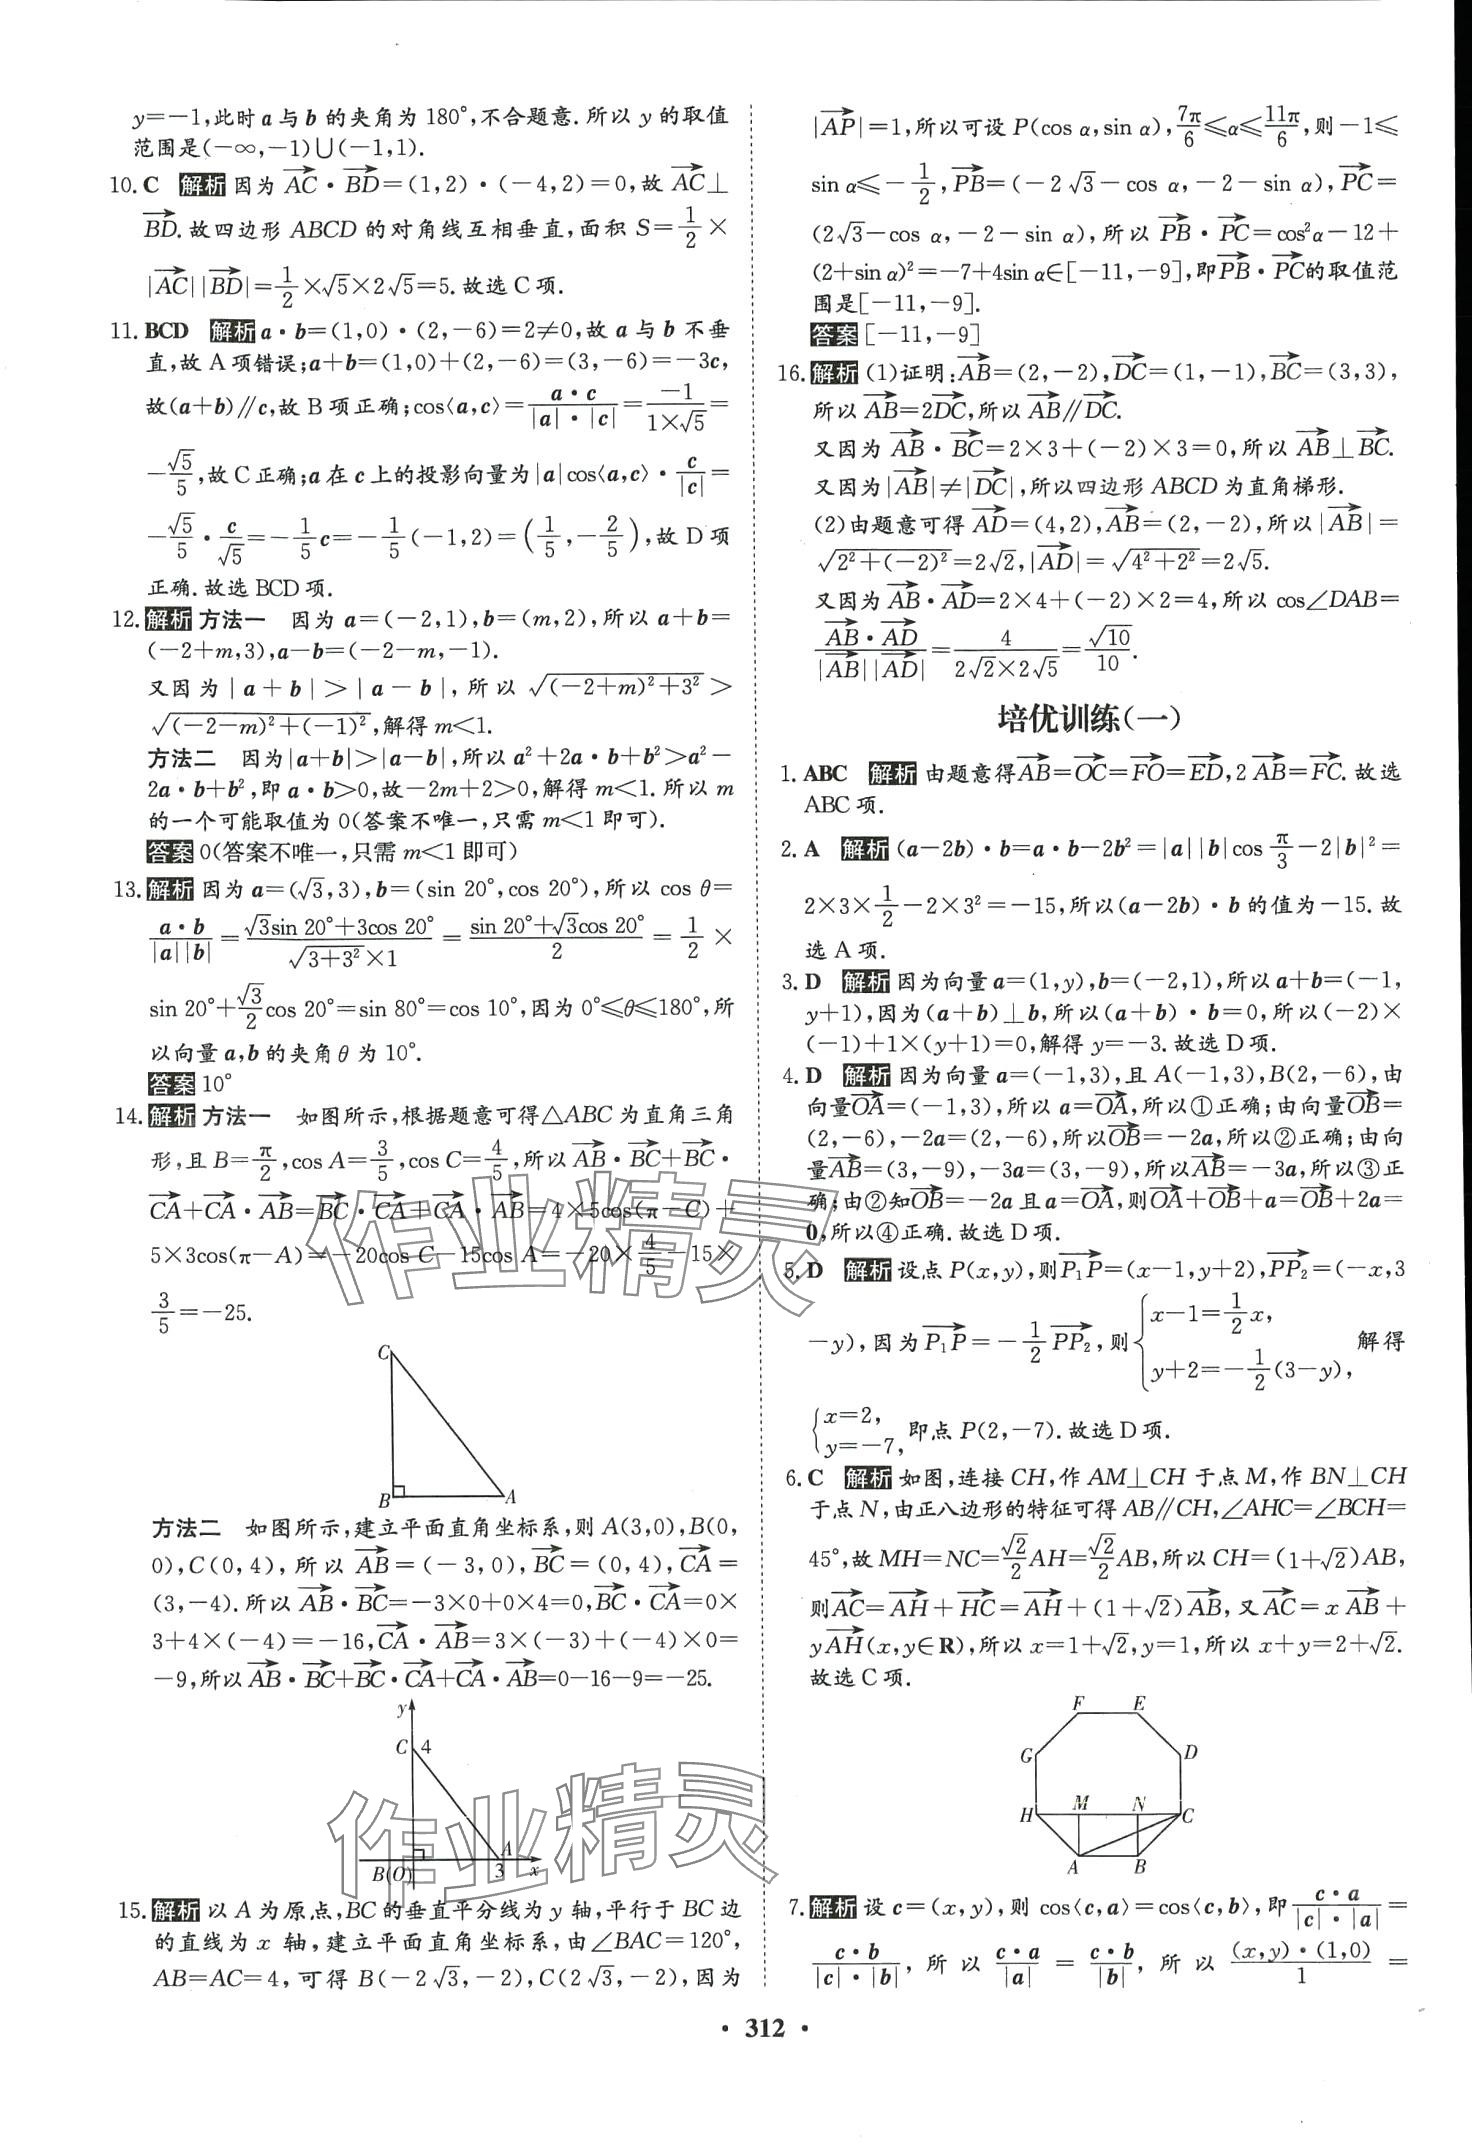 y=－1,此时 a 与 b 的夹角为 180°,不合题意.所以 y 的取值
范围是(－∞,－1)∪(－1,1).
10. C 解析 因为 \overrightarrow{AC}·\overrightarrow{BD}=(1,2)·(－4,2)=0,故 \overrightarrow{AC}⊥
\overrightarrow{BD}.故四边形 ABCD 的对角线互相垂直,面积 S=\frac{1}{2}×
|\overrightarrow{AC}||\overrightarrow{BD}|=\frac{1}{2}×√5×2√5=5.故选 C 项.
11. BCD 解析 a·b=(1,0)·(2,－6)=2≠0,故 a 与 b 不垂
直,故 A 项错误;a+b=(1,0)+(2,－6)=(3,－6)=－3c,
故(a+b)∥c,故 B 项正确;cos⟨a,c⟩=\frac{a·c}{|a|·|c|}=\frac{－1}{1×√5}=
－\frac{√5}{5},故 C 正确;a 在 c 上的投影向量为|a|cos⟨a,c⟩·\frac{c}{|c|}=
－\frac{√5}{5}·\frac{c}{√5}=－\frac{1}{5}c=－\frac{1}{5}(－1,2)=(\frac{1}{5},－\frac{2}{5}),故 D 项
正确.故选 BCD 项.
12. 解析 方法一 因为 a=(－2,1),b=(m,2),所以 a+b=
(－2+m,3),a－b=(－2－m,－1).
又因为|a+b|>|a－b|,所以 \sqrt{(－2+m)²+3²}>
\sqrt{(－2－m)²+(－1)²},解得 m<1.
方法二 因为|a+b|>|a－b|,所以 a²+2a·b+b²>a²－
2a·b+b²,即 a·b>0,故－2m+2>0,解得 m<1.所以 m
的一个可能取值为 0(答案不唯一,只需 m<1 即可).
答案 0(答案不唯一,只需 m<1 即可)
13. 解析 因为 a=(√3,3),b=(sin 20°,cos 20°),所以 cos θ=
\frac{a·b}{|a||b|}=\frac{√3sin 20°+3cos 20°}{\sqrt{3+3²}×1}=\frac{sin 20°+√3cos 20°}{2}=\frac{1}{2}×
sin 20°+\frac{√3}{2}cos 20°=sin 80°=cos 10°,因为 0°≤θ≤180°,所
以向量 a,b 的夹角 θ 为 10°.
答案 10°
14. 解析 方法一 如图所示,根据题意可得△ABC 为直角三角
形,且 B=\frac{π}{2},cos A=\frac{3}{5},cos C=\frac{4}{5},所以 \overrightarrow{AB}·\overrightarrow{BC}+\overrightarrow{BC}·
\overrightarrow{CA}+\overrightarrow{CA}·\overrightarrow{AB}=\overrightarrow{BC}·\overrightarrow{CA}+\overrightarrow{CA}·\overrightarrow{AB}=4×5cos(π－C)+
5×3cos(π－A)=－20cos C－15cos A=－20×\frac{4}{5}－15×
\frac{3}{5}=－25.
C
B A
方法二 如图所示,建立平面直角坐标系,则 A(3,0),B(0,
0),C(0,4),所以 \overrightarrow{AB}=(－3,0),\overrightarrow{BC}=(0,4),\overrightarrow{CA}=
(3,－4).所以 \overrightarrow{AB}·\overrightarrow{BC}=－3×0+0×4=0,\overrightarrow{BC}·\overrightarrow{CA}=0×
3+4×(－4)=－16,\overrightarrow{CA}·\overrightarrow{AB}=3×(－3)+(－4)×0=
－9,所以 \overrightarrow{AB}·\overrightarrow{BC}+\overrightarrow{BC}·\overrightarrow{CA}+\overrightarrow{CA}·\overrightarrow{AB}=0－16－9=－25.
y
C 4
A
B(O) 3 x
15. 解析 以 A 为原点,BC 的垂直平分线为 y 轴,平行于 BC 边
的直线为 x 轴,建立平面直角坐标系,由∠BAC=120°,
AB=AC=4,可得 B(－2√3,－2),C(2√3,－2),因为
|\overrightarrow{AP}|=1,所以可设 P(cos α,sin α),\frac{7π}{6}≤α≤\frac{11π}{6},则－1≤
sin α≤－\frac{1}{2},\overrightarrow{PB}=(－2√3－cos α,－2－sin α),\overrightarrow{PC}=
(2√3－cos α,－2－sin α),所以 \overrightarrow{PB}·\overrightarrow{PC}=cos²α－12+
(2+sin α)²=－7+4sin α∈[－11,－9],即\overrightarrow{PB}·\overrightarrow{PC}的取值范
围是[－11,－9].
答案 [－11,－9]
16. 解析 (1)证明:\overrightarrow{AB}=(2,－2),\overrightarrow{DC}=(1,－1),\overrightarrow{BC}=(3,3),
所以 \overrightarrow{AB}=2\overrightarrow{DC},所以 \overrightarrow{AB}∥\overrightarrow{DC}.
又因为 \overrightarrow{AB}·\overrightarrow{BC}=2×3+(－2)×3=0,所以 \overrightarrow{AB}⊥\overrightarrow{BC}.
又因为|\overrightarrow{AB}|≠|\overrightarrow{DC}|,所以四边形 ABCD 为直角梯形.
(2)由题意可得 \overrightarrow{AD}=(4,2),\overrightarrow{AB}=(2,－2),所以|\overrightarrow{AB}|=
\sqrt{2²+(－2)²}=2√2,|\overrightarrow{AD}|=\sqrt{4²+2²}=2√5.
又因为 \overrightarrow{AB}·\overrightarrow{AD}=2×4+(－2)×2=4,所以 cos∠DAB=
\frac{\overrightarrow{AB}·\overrightarrow{AD}}{|\overrightarrow{AB}||\overrightarrow{AD}|}=\frac{4}{2√2×2√5}=\frac{√10}{10}.
培优训练(一)
1. ABC 解析 由题意得\overrightarrow{AB}=\overrightarrow{OC}=\overrightarrow{FO}=\overrightarrow{ED},2\overrightarrow{AB}=\overrightarrow{FC}.故选
ABC 项.
2. A 解析 (a－2b)·b=a·b－2b²=|a||b|cos \frac{π}{3}－2|b|²=
2×3×\frac{1}{2}－2×3²=－15,所以(a－2b)·b 的值为－15.故
选 A 项.
3. D 解析 因为向量 a=(1,y),b=(－2,1),所以 a+b=(－1,
y+1),因为(a+b)⊥b,所以(a+b)·b=0,所以(－2)×
(－1)+1×(y+1)=0,解得 y=－3.故选 D 项.
4. D 解析 因为向量 a=(－1,3),且 A(－1,3),B(2,－6),由
向量\overrightarrow{OA}=(－1,3),所以 a=\overrightarrow{OA},所以①正确;由向量\overrightarrow{OB}=
(2,－6),－2a=(2,－6),所以\overrightarrow{OB}=－2a,所以②正确;由向
量\overrightarrow{AB}=(3,－9),－3a=(3,－9),所以\overrightarrow{AB}=－3a,所以③正
确;由②知\overrightarrow{OB}=－2a 且 a=\overrightarrow{OA},则\overrightarrow{OA}+\overrightarrow{OB}+a=\overrightarrow{OB}+2a=
0,所以④正确.故选 D 项.
5. D 解析 设点 P(x,y),则\overrightarrow{P₁P}=(x－1,y+2),\overrightarrow{PP₂}=(－x,3
－y),因为\overrightarrow{P₁P}=－\frac{1}{2}\overrightarrow{PP₂},则{x－1=\frac{1}{2}x, y+2=－\frac{1}{2}(3－y), 解得
{x=2, y=－7, 即点 P(2,－7).故选 D 项.
6. C 解析 如图,连接 CH,作 AM⊥CH 于点 M,作 BN⊥CH
于点 N,由正八边形的特征可得 AB∥CH,∠AHC=∠BCH=
45°,故 MH=NC=\frac{√2}{2}AH=\frac{√2}{2}AB,所以 CH=(1+√2)AB,
则\overrightarrow{AC}=\overrightarrow{AH}+\overrightarrow{HC}=\overrightarrow{AH}+(1+√2)\overrightarrow{AB},又\overrightarrow{AC}=x\overrightarrow{AB}+
y\overrightarrow{AH}(x,y∈R),所以 x=1+√2,y=1,所以 x+y=2+√2.
故选 C 项.
F E
G D
H M N C
A B
7. 解析 设 c=(x,y),则 cos⟨c,a⟩=cos⟨c,b⟩,即\frac{c·a}{|c|·|a|}=
\frac{c·b}{|c|·|b|},所以 \frac{c·a}{|a|}=\frac{c·b}{|b|},所以 \frac{(x,y)·(1,0)}{1}=
·312·
作业精灵
作业精灵